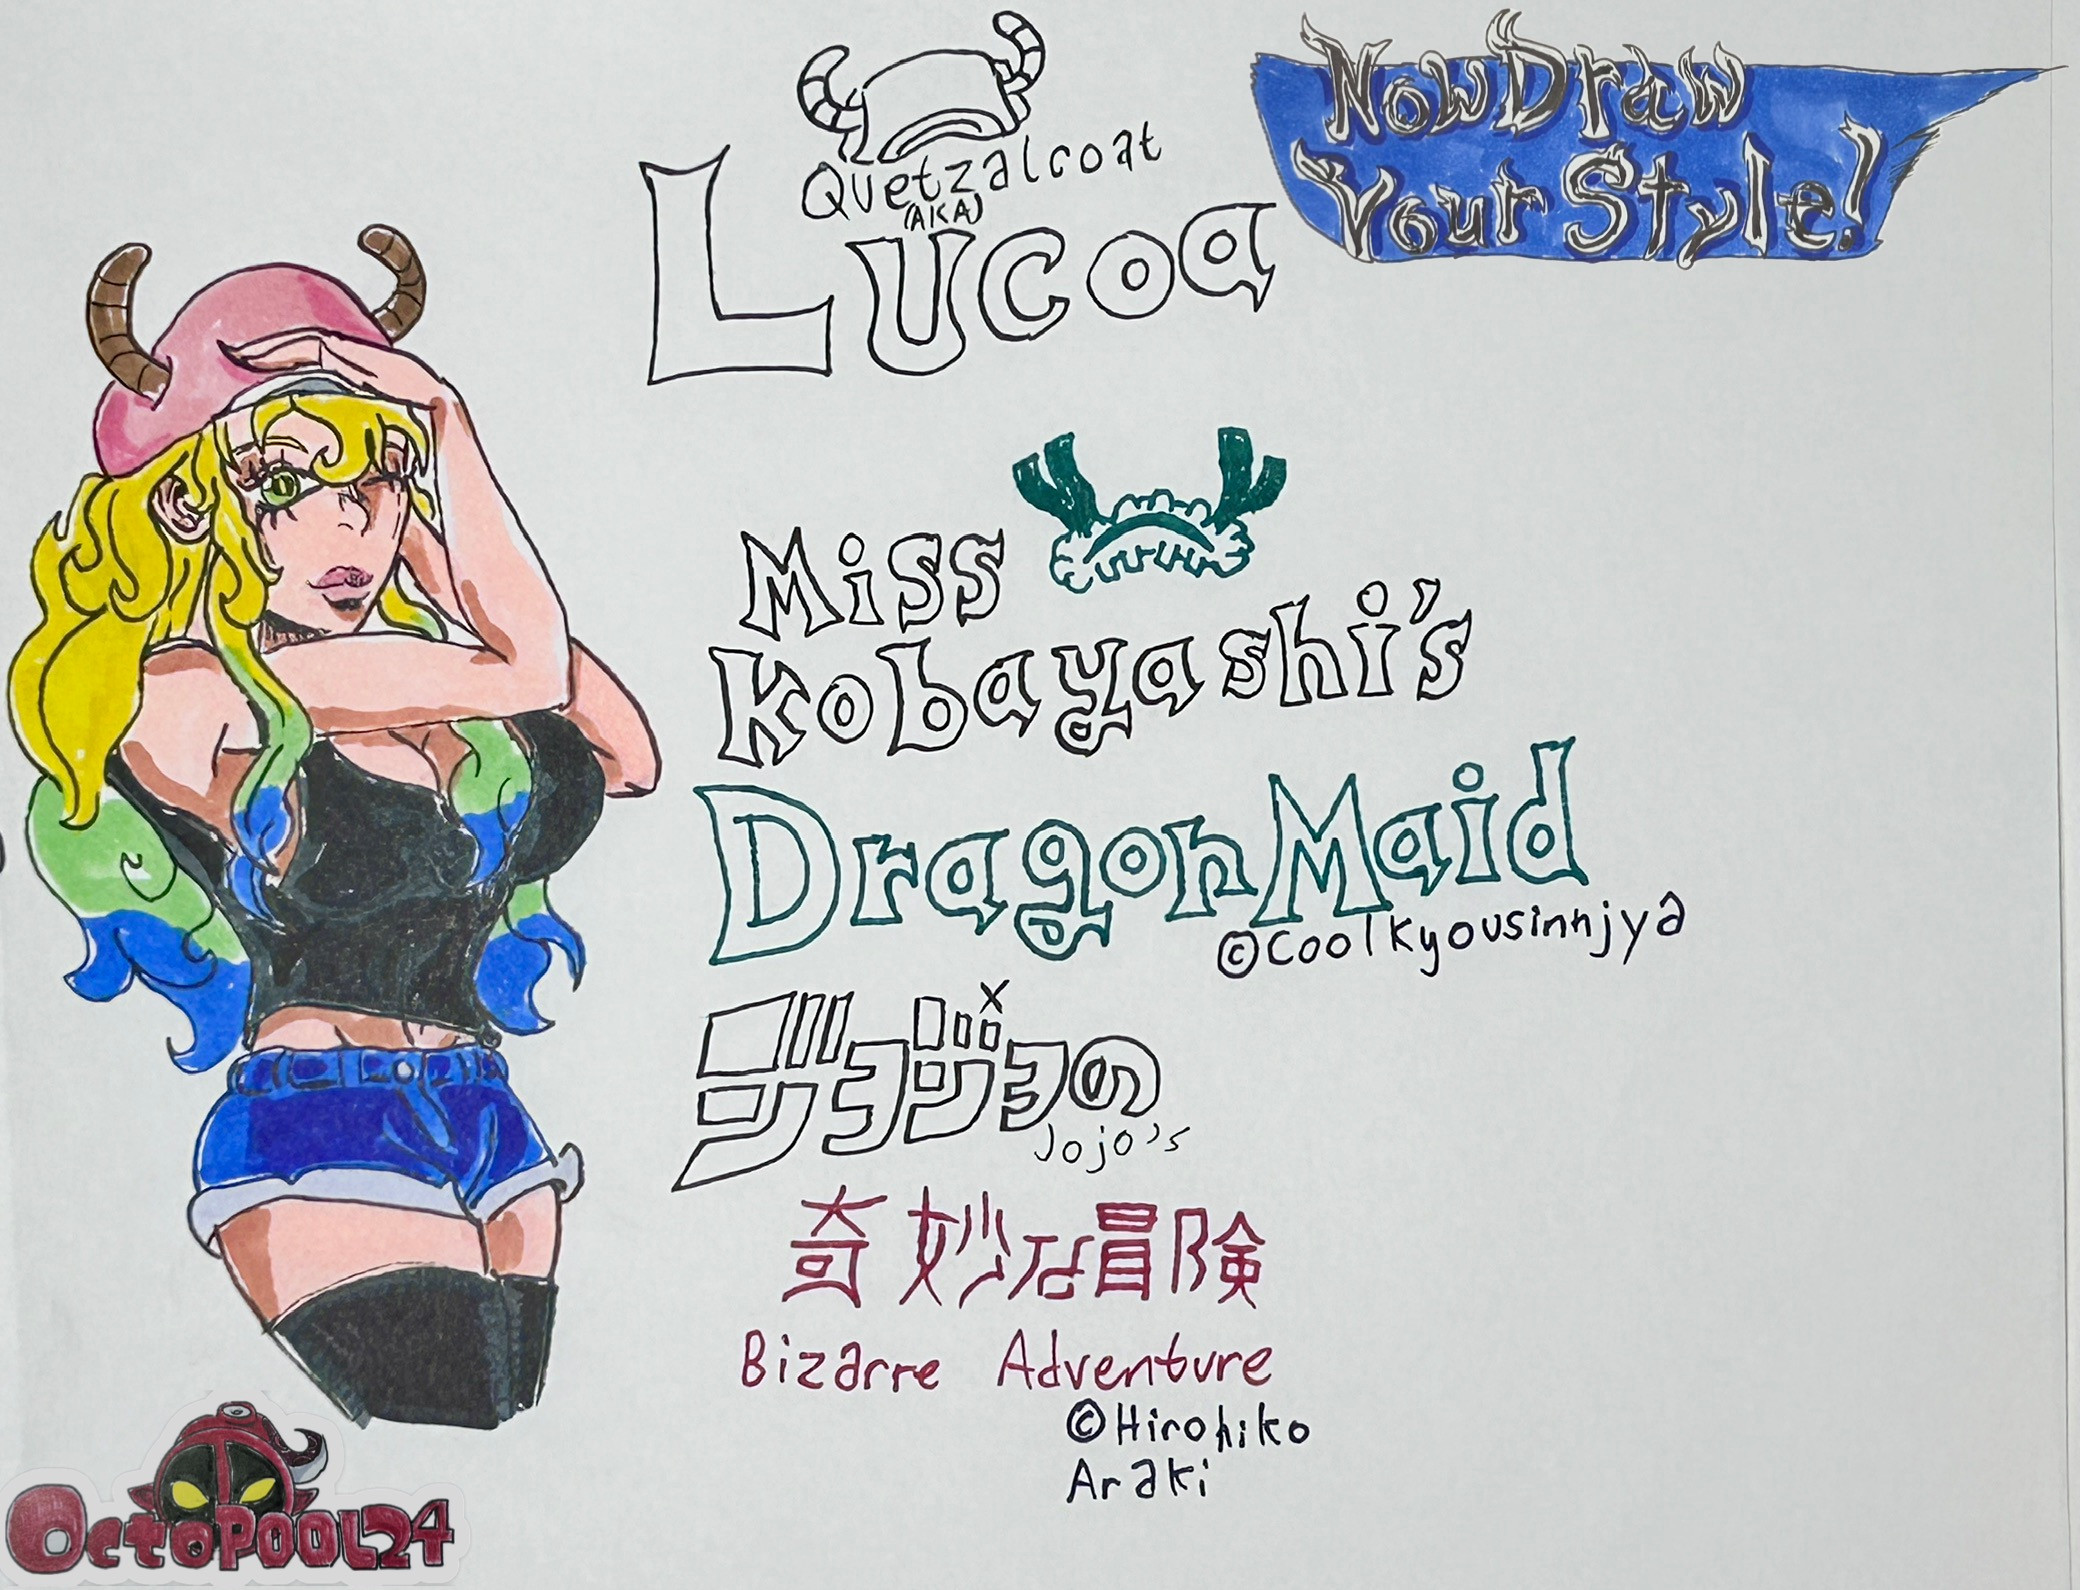 Now Draw
Your Style!
Quetzalcoat
(AKA)
Lucoa
Miss
Kobayashi's
Dragon Maid
©Coolkyousinnjya
ジョジョの
Jojo's
奇妙な冒険
Bizarre Adventure
©Hirohiko
Araki
OctoPool24